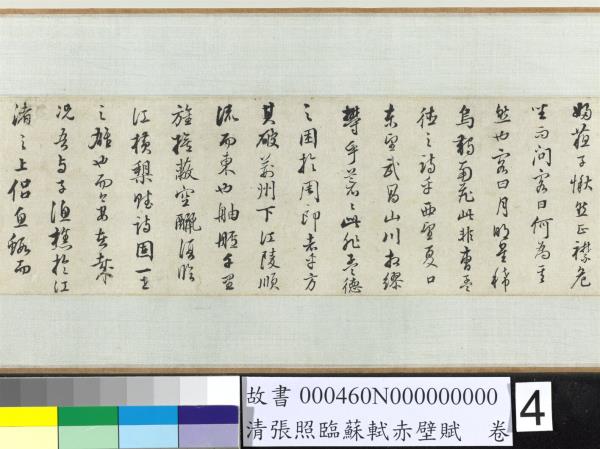 婦蘇子愀然正襟危
坐而問客曰何為其
然也客曰月明星稀
烏鵲南飛此非曹孟
德之詩乎西望夏口
東望武昌山川相繆
鬱乎蒼〻此非孟德
之困於周郎者乎方
其破荊州下江陵順
流而東也舳艫千里
旌旗蔽空釃酒臨
江橫槊賦詩固一世
之雄也而今安在哉
況吾與子漁樵於江
渚之上侶魚蝦而
故書 000460N000000000
清張照臨蘇軾赤壁賦 卷
4